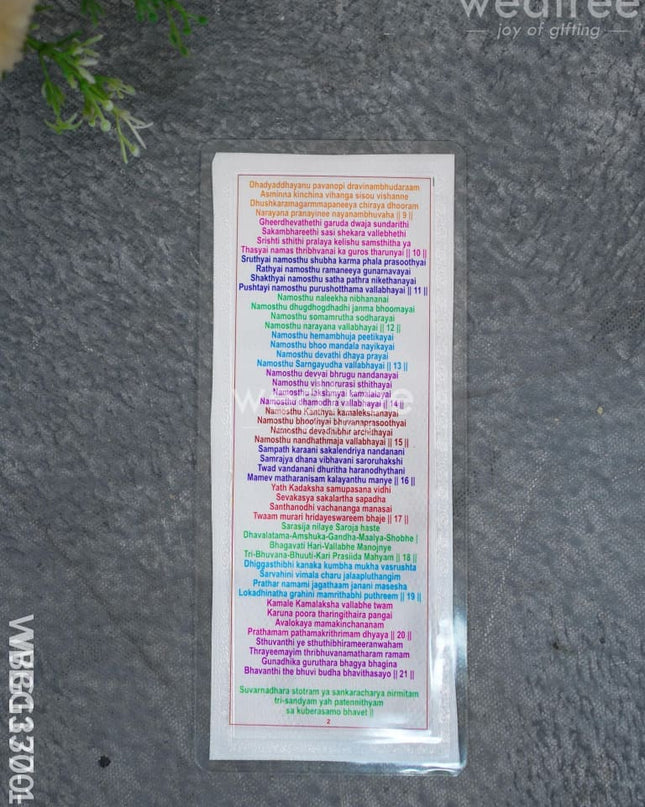 wedtree
joy of gifting
Dhadyaddhayanu pavanopi dravinambhudaraam
Asminna kinchina vihanga sisou vishanne
Dhushkaramagarmmapaneeya chiraya dhooram
Narayana pranayinee nayanambhuvaha || 9 ||
Gheerdhevathethi garuda dwaja sundarithi
Sakambhareethi sasi shekara vallebhethi
Srishti sthithi pralaya kelishu samsthitha ya
Thasyai namas thribhvanai ka guros tharunyai || 10 ||
Sruthyai namosthu shubha karma phala prasoothyai
Rathyai namosthu ramaneeya gunarnavayai
Shakthyai namosthu satha pathra nikethanayai
Pushtayi namosthu purushotthama vallabhayai || 11 ||
Namosthu naleekha nibhananai
Namosthu dhugdhogdhadhi janma bhoomayai
Namosthu somamrutha sodharayai
Namosthu narayana vallabhayai || 12 ||
Namosthu hemambhuja peetikayai
Namosthu bhoo mandala nayikayai
Namosthu devathi dhaya prayai
Namosthu Sarngayudha vallabhayai || 13 ||
Namosthu devyai bhrugu nandanayai
Namosthu vishnorurasi sthithayai
Namosthu lakshmyai kamalalayai
Namosthu dhamodhra vallabhayai || 14 ||
Namosthu Kanthyai kamalekshanayai
Namosthu bhoothyai bhuvanaprasoothyai
Namosthu devadhibhir archithayai
Namosthu nandhathmaja vallabhayai || 15 ||
Sampath karaani sakalendriya nandanani
Samrajya dhana vibhavani saroruhakshi
Twad vandanani dhuritha haranodhythani
Mamev matharanisam kalayanthu manye || 16 ||
Yath Kadaksha samupasana vidhi
Sevakasya sakalartha sapadha
Santhanodhi vachananga manasai
Twaam murari hridayeswareem bhaje || 17 ||
Sarasija nilaye Saroja haste
Dhavalatama-Amshuka-Gandha-Maalya-Shobhe |
Bhagavati Hari-Vallabhe Manojnye
Tri-Bhuvana-Bhuuti-Kari Prasiida Mahyam || 18 ||
Dhiggasthibhi kanaka kumbha mukha vasrushta
Sarvahini vimala charu jalaapluthangim
Prathar namami jagathaam janani masesha
Lokadhinatha grahini mamrithabhi puthreem || 19 ||
Kamale Kamalaksha vallabhe twam
Karuna poora tharingithaira pangai
Avalokaya mamakinchananam
Prathamam pathamakrithrimam dhyaya || 20 ||
Sthuvanthi ye sthuthibhirameeranwaham
Thrayeemayim thribhuvanamatharam ramam
Gunadhika guruthara bhagya bhagina
Bhavanthi the bhuvi budha bhavithasayo || 21 ||
Suvarnadhara stotram ya sankaracharya nirmitam
tri-sandyam yah patennithyam
sa kuberasamo bhavet ||
2